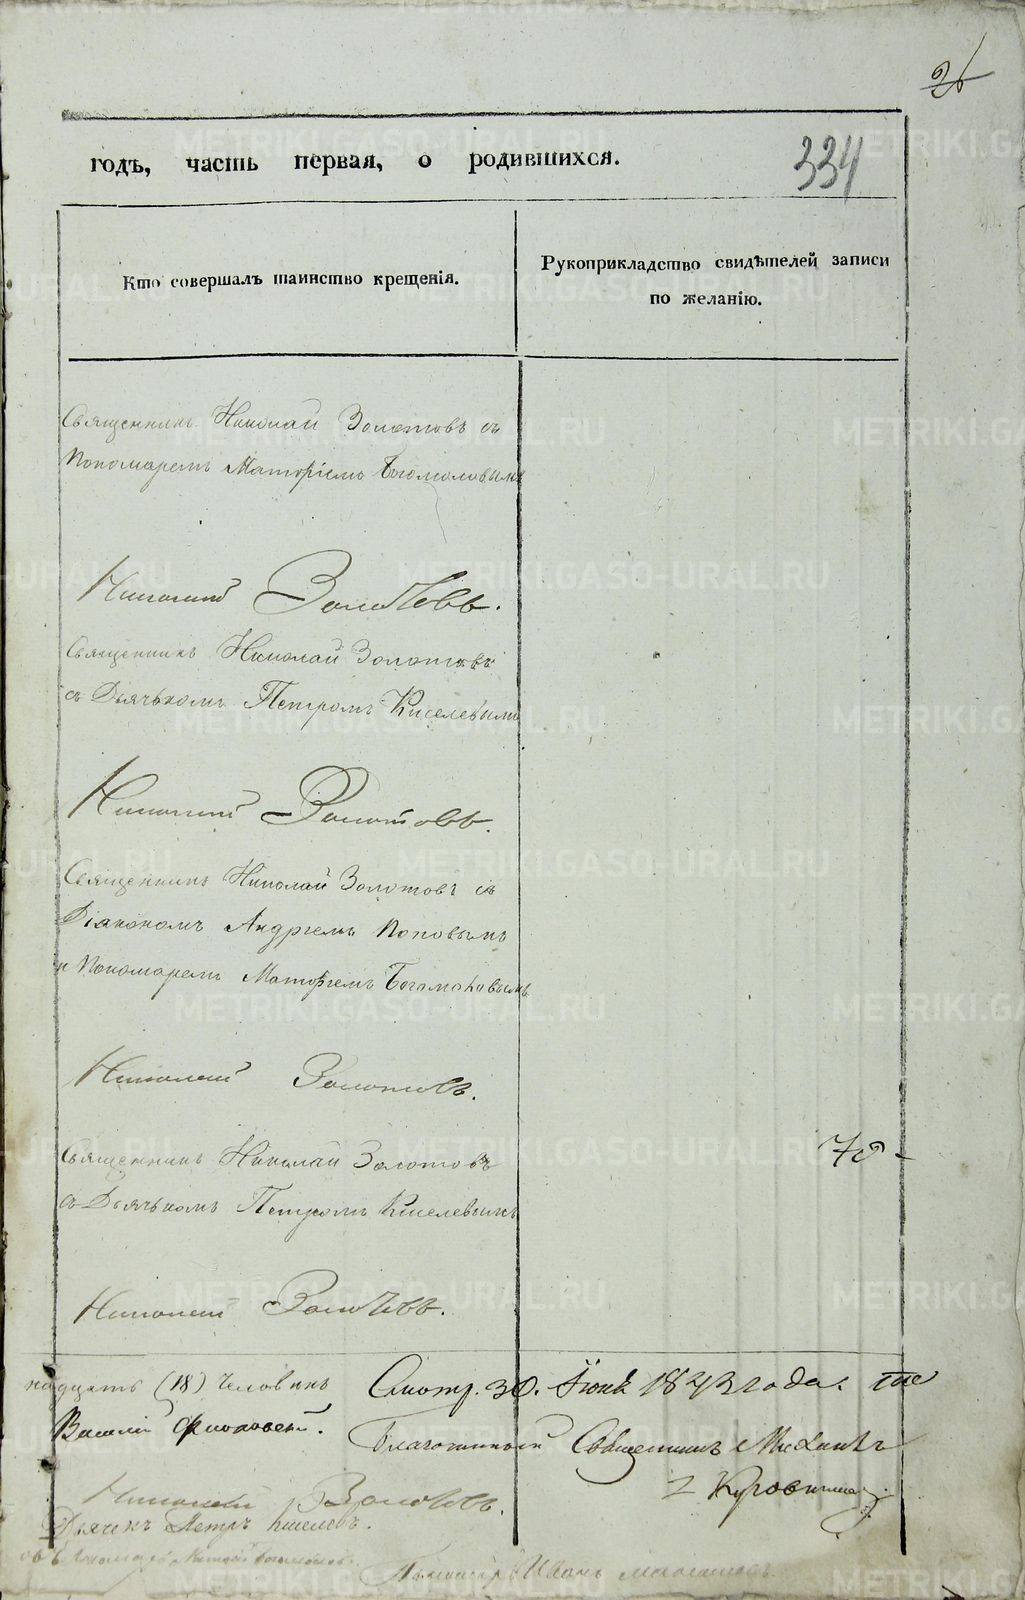 26
годъ, часть первая, о родившихся.
334
Кто совершалъ таинство крещенія.
Рукоприкладство свидѣтелей записи
по желанію.
Священникъ Николай Золотовъ съ
Пономаремъ Матфіемъ Богомоловымъ
Николай Золотовъ.
Священникъ Николай Золотовъ
съ Дьячькомъ Петромъ Киселевымъ
Николай Золотовъ.
Священникъ Николай Золотовъ съ
Діякономъ Андреемъ Поповымъ
и Пономаремъ Матфіемъ Богомоловымъ
Николай Золотовъ.
Священникъ Николай Золотовъ
съ Дьячькомъ Петромъ Киселевымъ
Николай Золотовъ.
надцать (18) человѣкъ
Смотр. 30. Іюня 1843 года.
Василій
Благочинный Священникъ Михаилъ
Николай Золотовъ.
Дьячекъ Петръ Киселевъ.
Пономарь Иванъ
METRIKI.GASO-URAL.RU